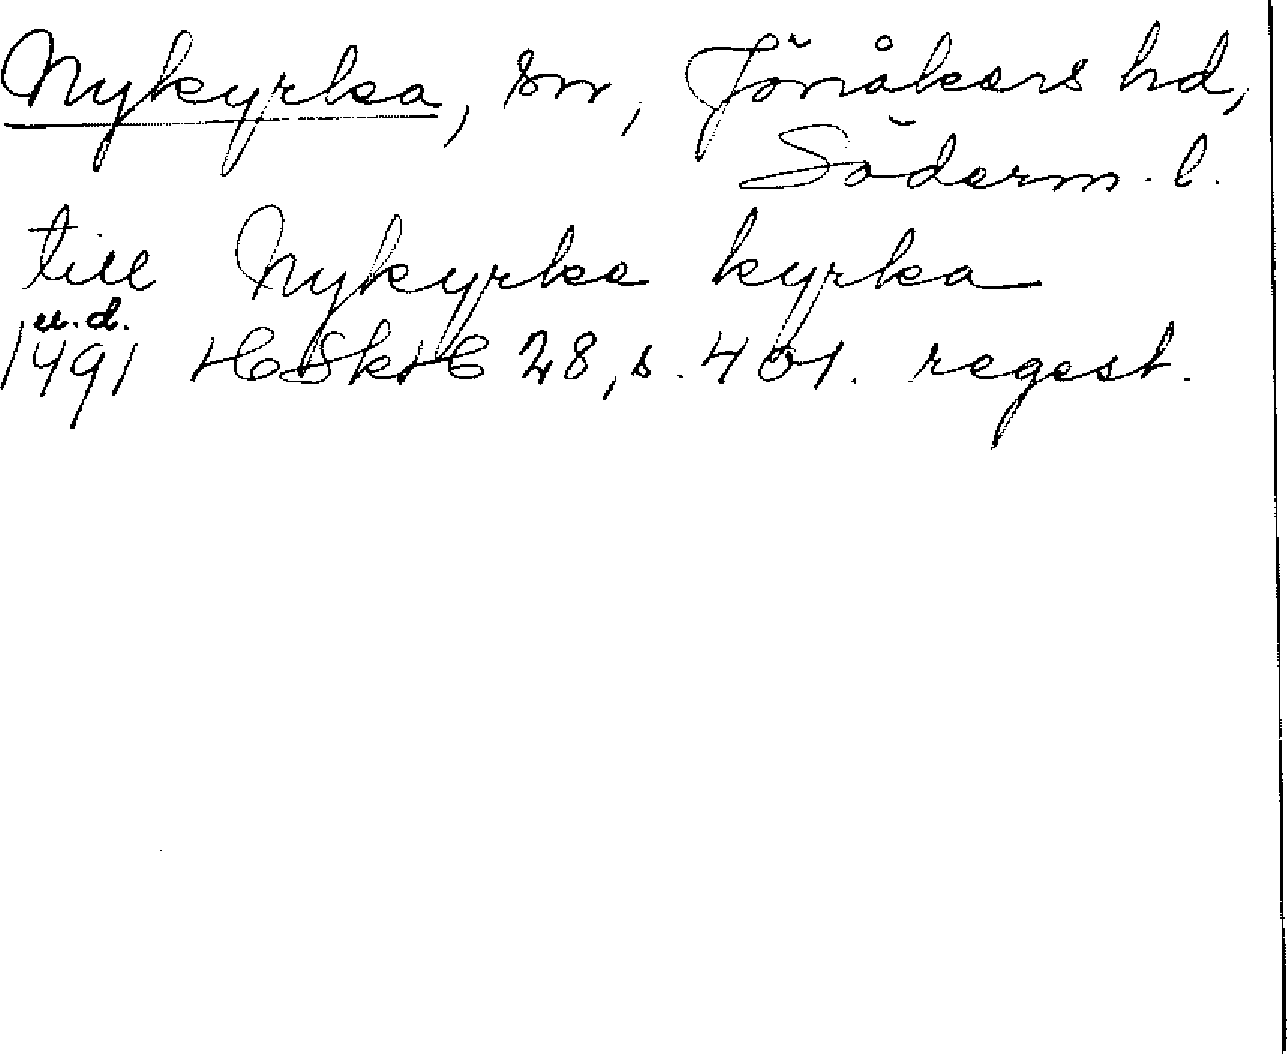 Nykyrka, sn, Jönåkers hd,
Söderm. l.
till Nykyrka kyrka
u.d.
1491 HSkH 28, s. 401. regest.